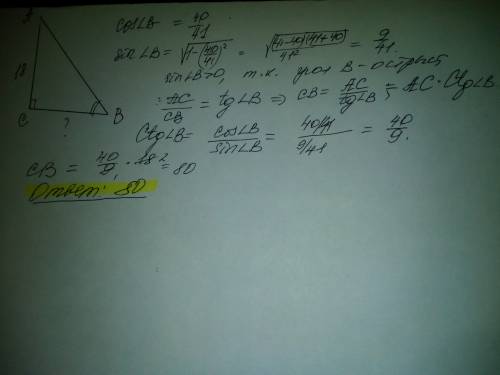 A
18
C
B
?
cos∠B = 40/41
sin∠B = √(1-(40/41)²) = √((41-40)(41+40)/41²) = 9/41.
sin∠B>0, т.к. угол B - острый
AC/CB = tg∠B ⇒ CB = AC/tg∠B = AC · Ctg∠B
Ctg∠B = cos∠B/sin∠B = (40/41)/(9/41) = 40/9.
CB = 40/9 · 18 = 80
Ответ: 80